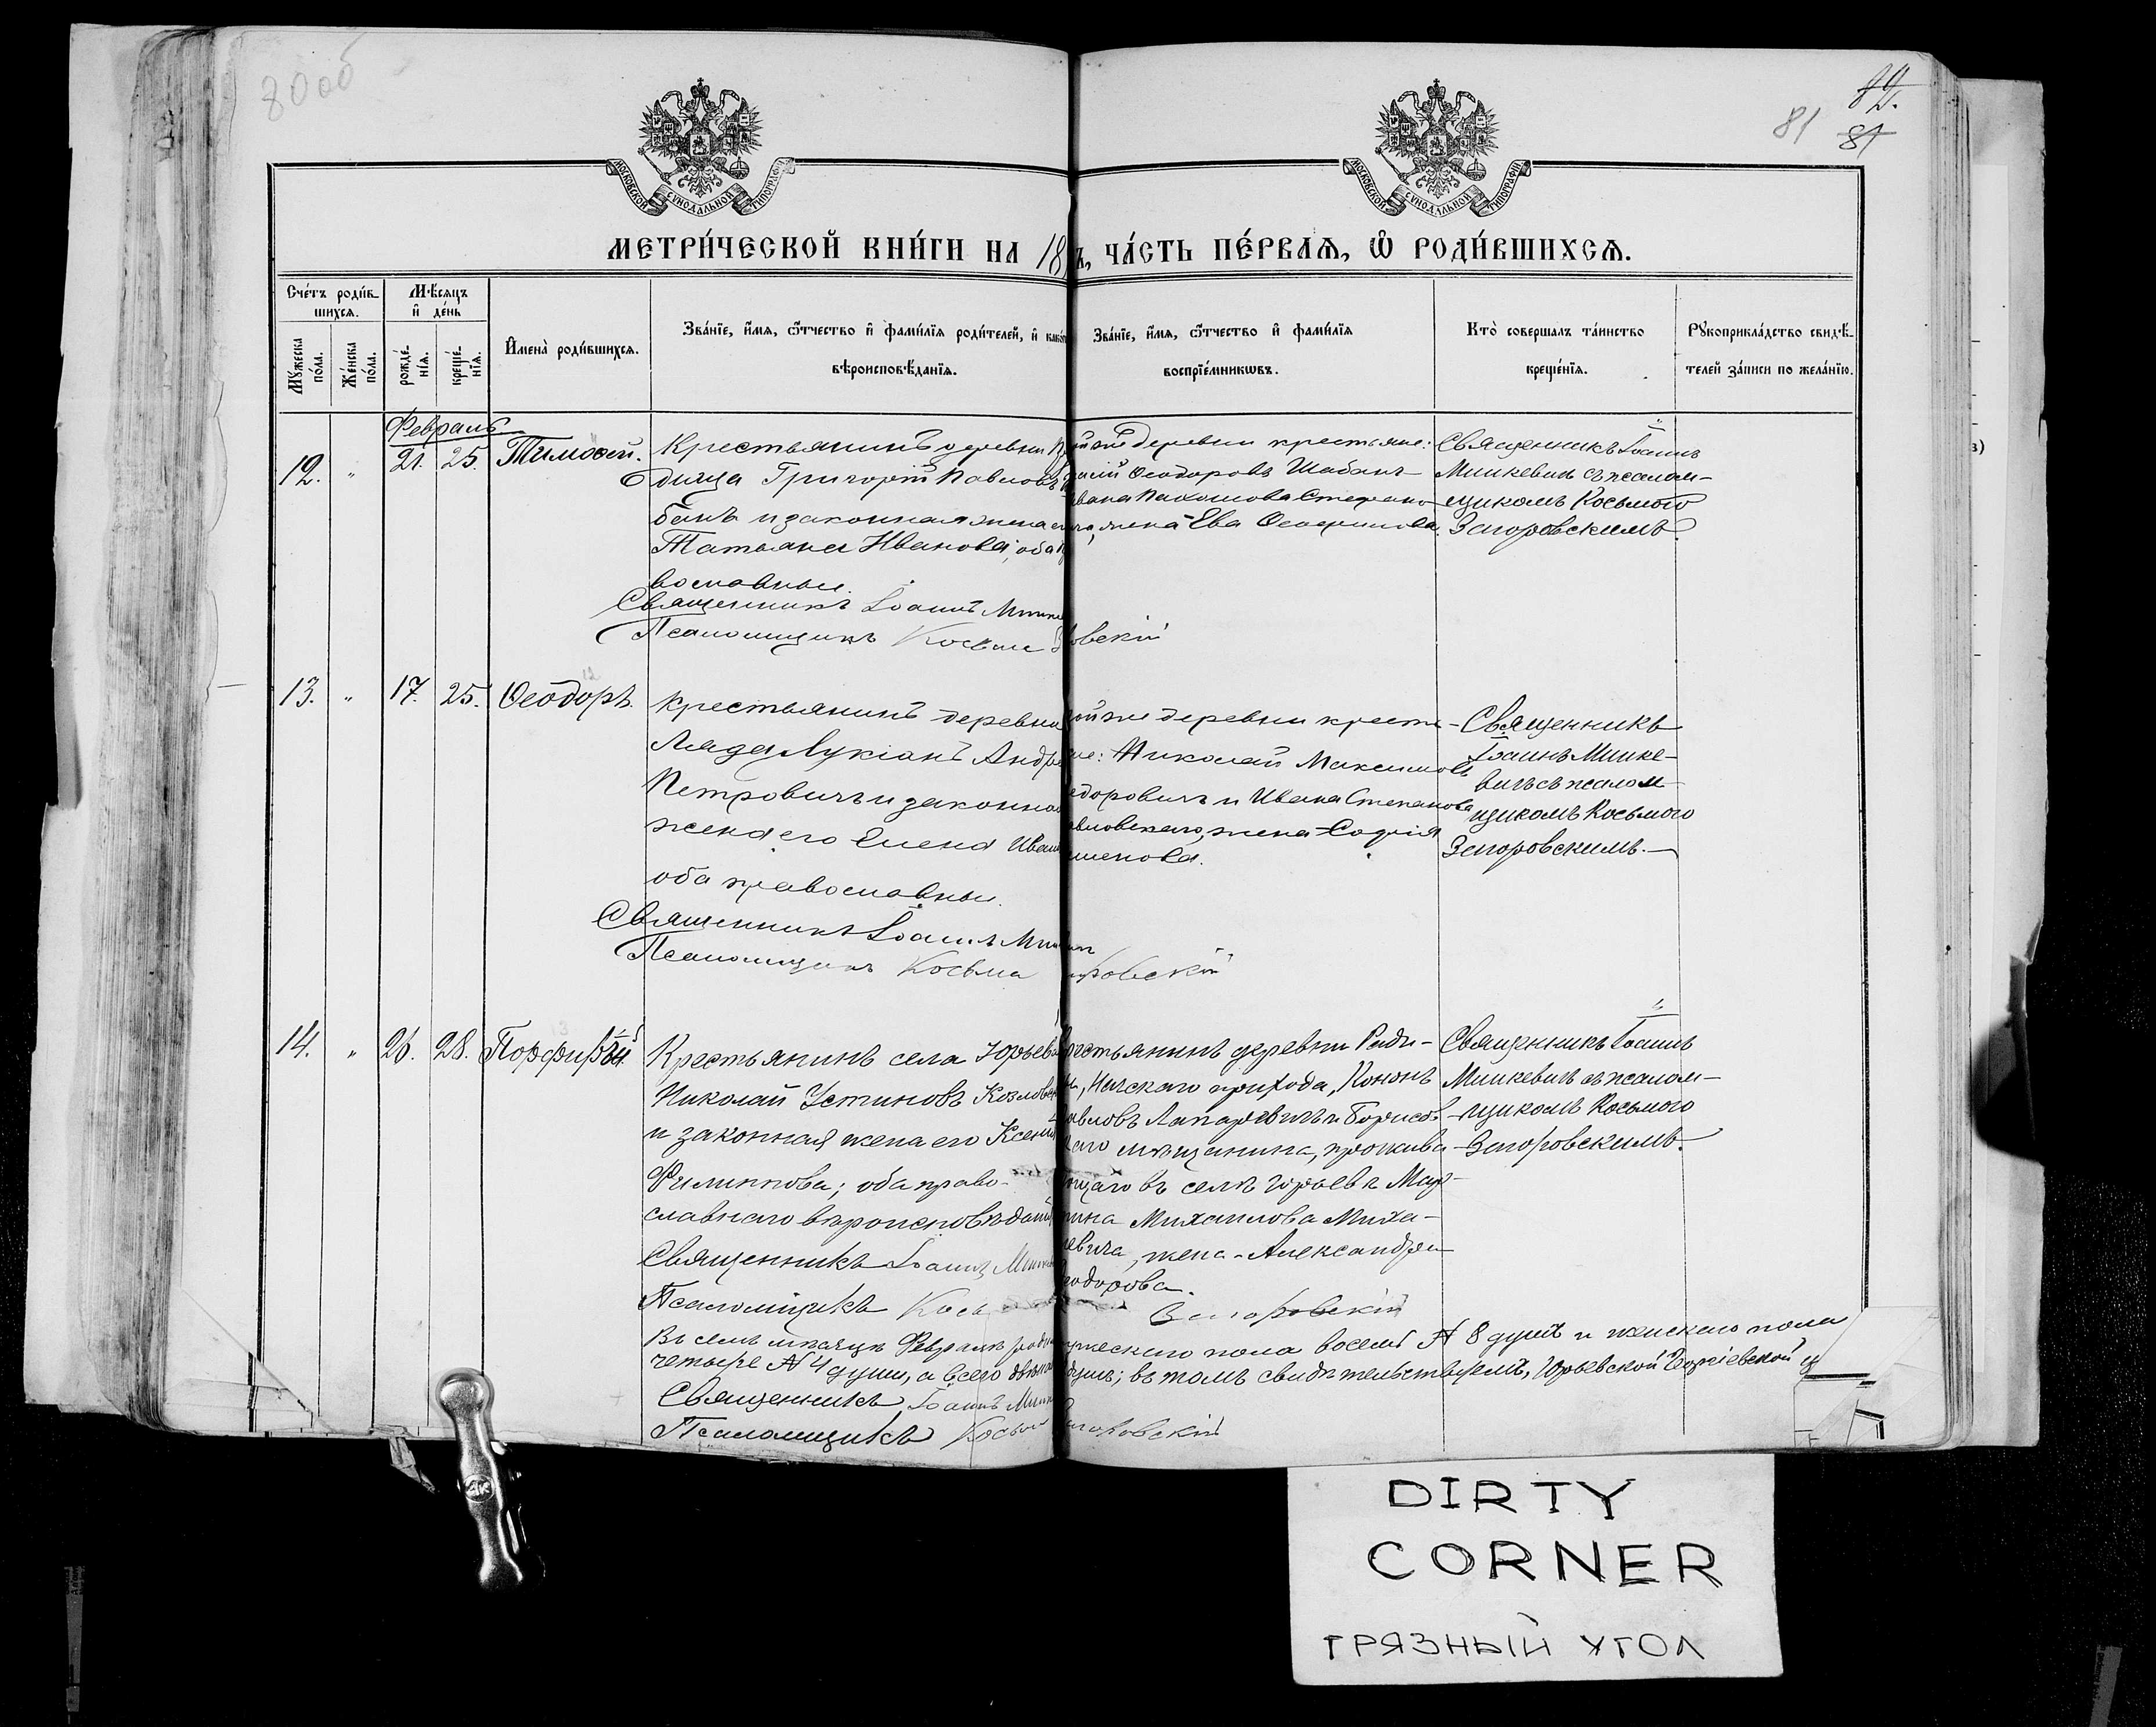 80об
82.
81 81
МОСКОВСКОЙ СУНОДАЛЬНОЙ ТИПОГРАФІИ
МОСКОВСКОЙ СУНОДАЛЬНОЙ ТИПОГРАФІИ
МЕТРИ́ЧЕСКОЙ КНИ́ГИ НА 18 ъ, ЧА́СТЬ ПЕ́РВАЯ, Ѿ РОДИ́ВШИХСЯ.
Сче́тъ роди́в-
шихся.
Мѣсяцъ
и де́нь
Мꙋжеска по́ла.
Же́нска по́ла.
рожде́-
нїя.
креще́-
нїя.
Имена̀ роди́вшихся.
Зва́нїе, и́мя, ѻ́тчество и фами́лїя роди́телей, и како́г
вѣроисповѣ́данїя.
Зва́нїе, и́мя, ѻ́тчество и фами́лїя
воспрїе́мникѡвъ.
Кто̀ совершалъ та́инство
креще́нїя.
Рꙋкоприкла́дство свидѣ́-
телей за́писи по жела́нїю.
Февраль
12. " 21. 25. Тимоѳей.
Крестьянинъ деревни
Григорій Павловъ
банъ и законная жена ег
Татьяна Иванова; оба п
вославные.
Священникъ Іоаннъ Мишке
Псаломщикъ Косьма З
ойже деревни крестьяне:
Ѳеодоровъ Шабанъ
Ивана Пахомова Степано
жена Ева
овскій
Священникъ Іоаннъ
Мишкевичъ съ псалом-
щикомъ Косьмою
Загоровскимъ.
13. " 17. 25. Ѳеодоръ.
Крестьянинъ деревни
Ляда Лукіанъ Андре
Петровичъ и законная
жена его Елена Иван
оба православные.
Священникъ Іоаннъ Миш
Псаломщикъ Косьма
ойже деревни кресть-
не: Николай Максимовъ
едоровичъ и Ивана Степанова
жена София
именова.
оровскій
Священникъ
Іоаннъ Мишке-
вичъ съ псалом-
щикомъ Косьмою
Загоровскимъ.
14. " 26. 28. Порфирій
Крестьянинъ села Юрьева
Николай Устиновъ Козлов
и законная жена его Ксенія
Филиппова; оба право-
славнаго вѣроисповѣданія
Священникъ Іоаннъ Мишке
Псаломщикъ Кось
рестьянинъ деревни Ради-
прихода, Кононъ
авловъ Лапаревичъ и Борисов-
каго мѣщанина, прожива-
ющаго въ селѣ Юрьевѣ Мар-
тина Михаилова Миха-
левича, жена - Александра
еодорова.
Загоровскій
Священникъ Іоаннъ
Мишкевичъ съ псалом-
щикомъ Косьмою
Загоровскимъ.
Въ семъ мѣсяцѣ Февралѣ роди ужескаго пола восемь № 8 душъ и женскаго пола
четыре № 4 души, а всего двѣнад душъ; въ томъ свидѣтельствуемъ, Юрьевской Георгіевской ц
Священникъ Іоаннъ Мишк
Псаломщикъ Косьма Загоровскій
DIRTY
CORNER
ГРЯЗНЫЙ УГОЛ